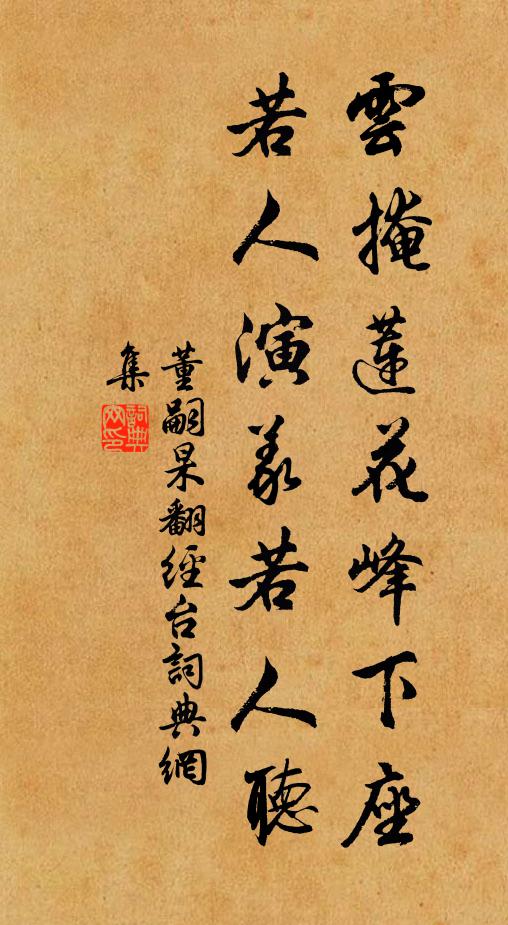 雲掩蓮花峰下座
若人演義若人聽
董嗣杲翻經台詞典網
集
詞典網印